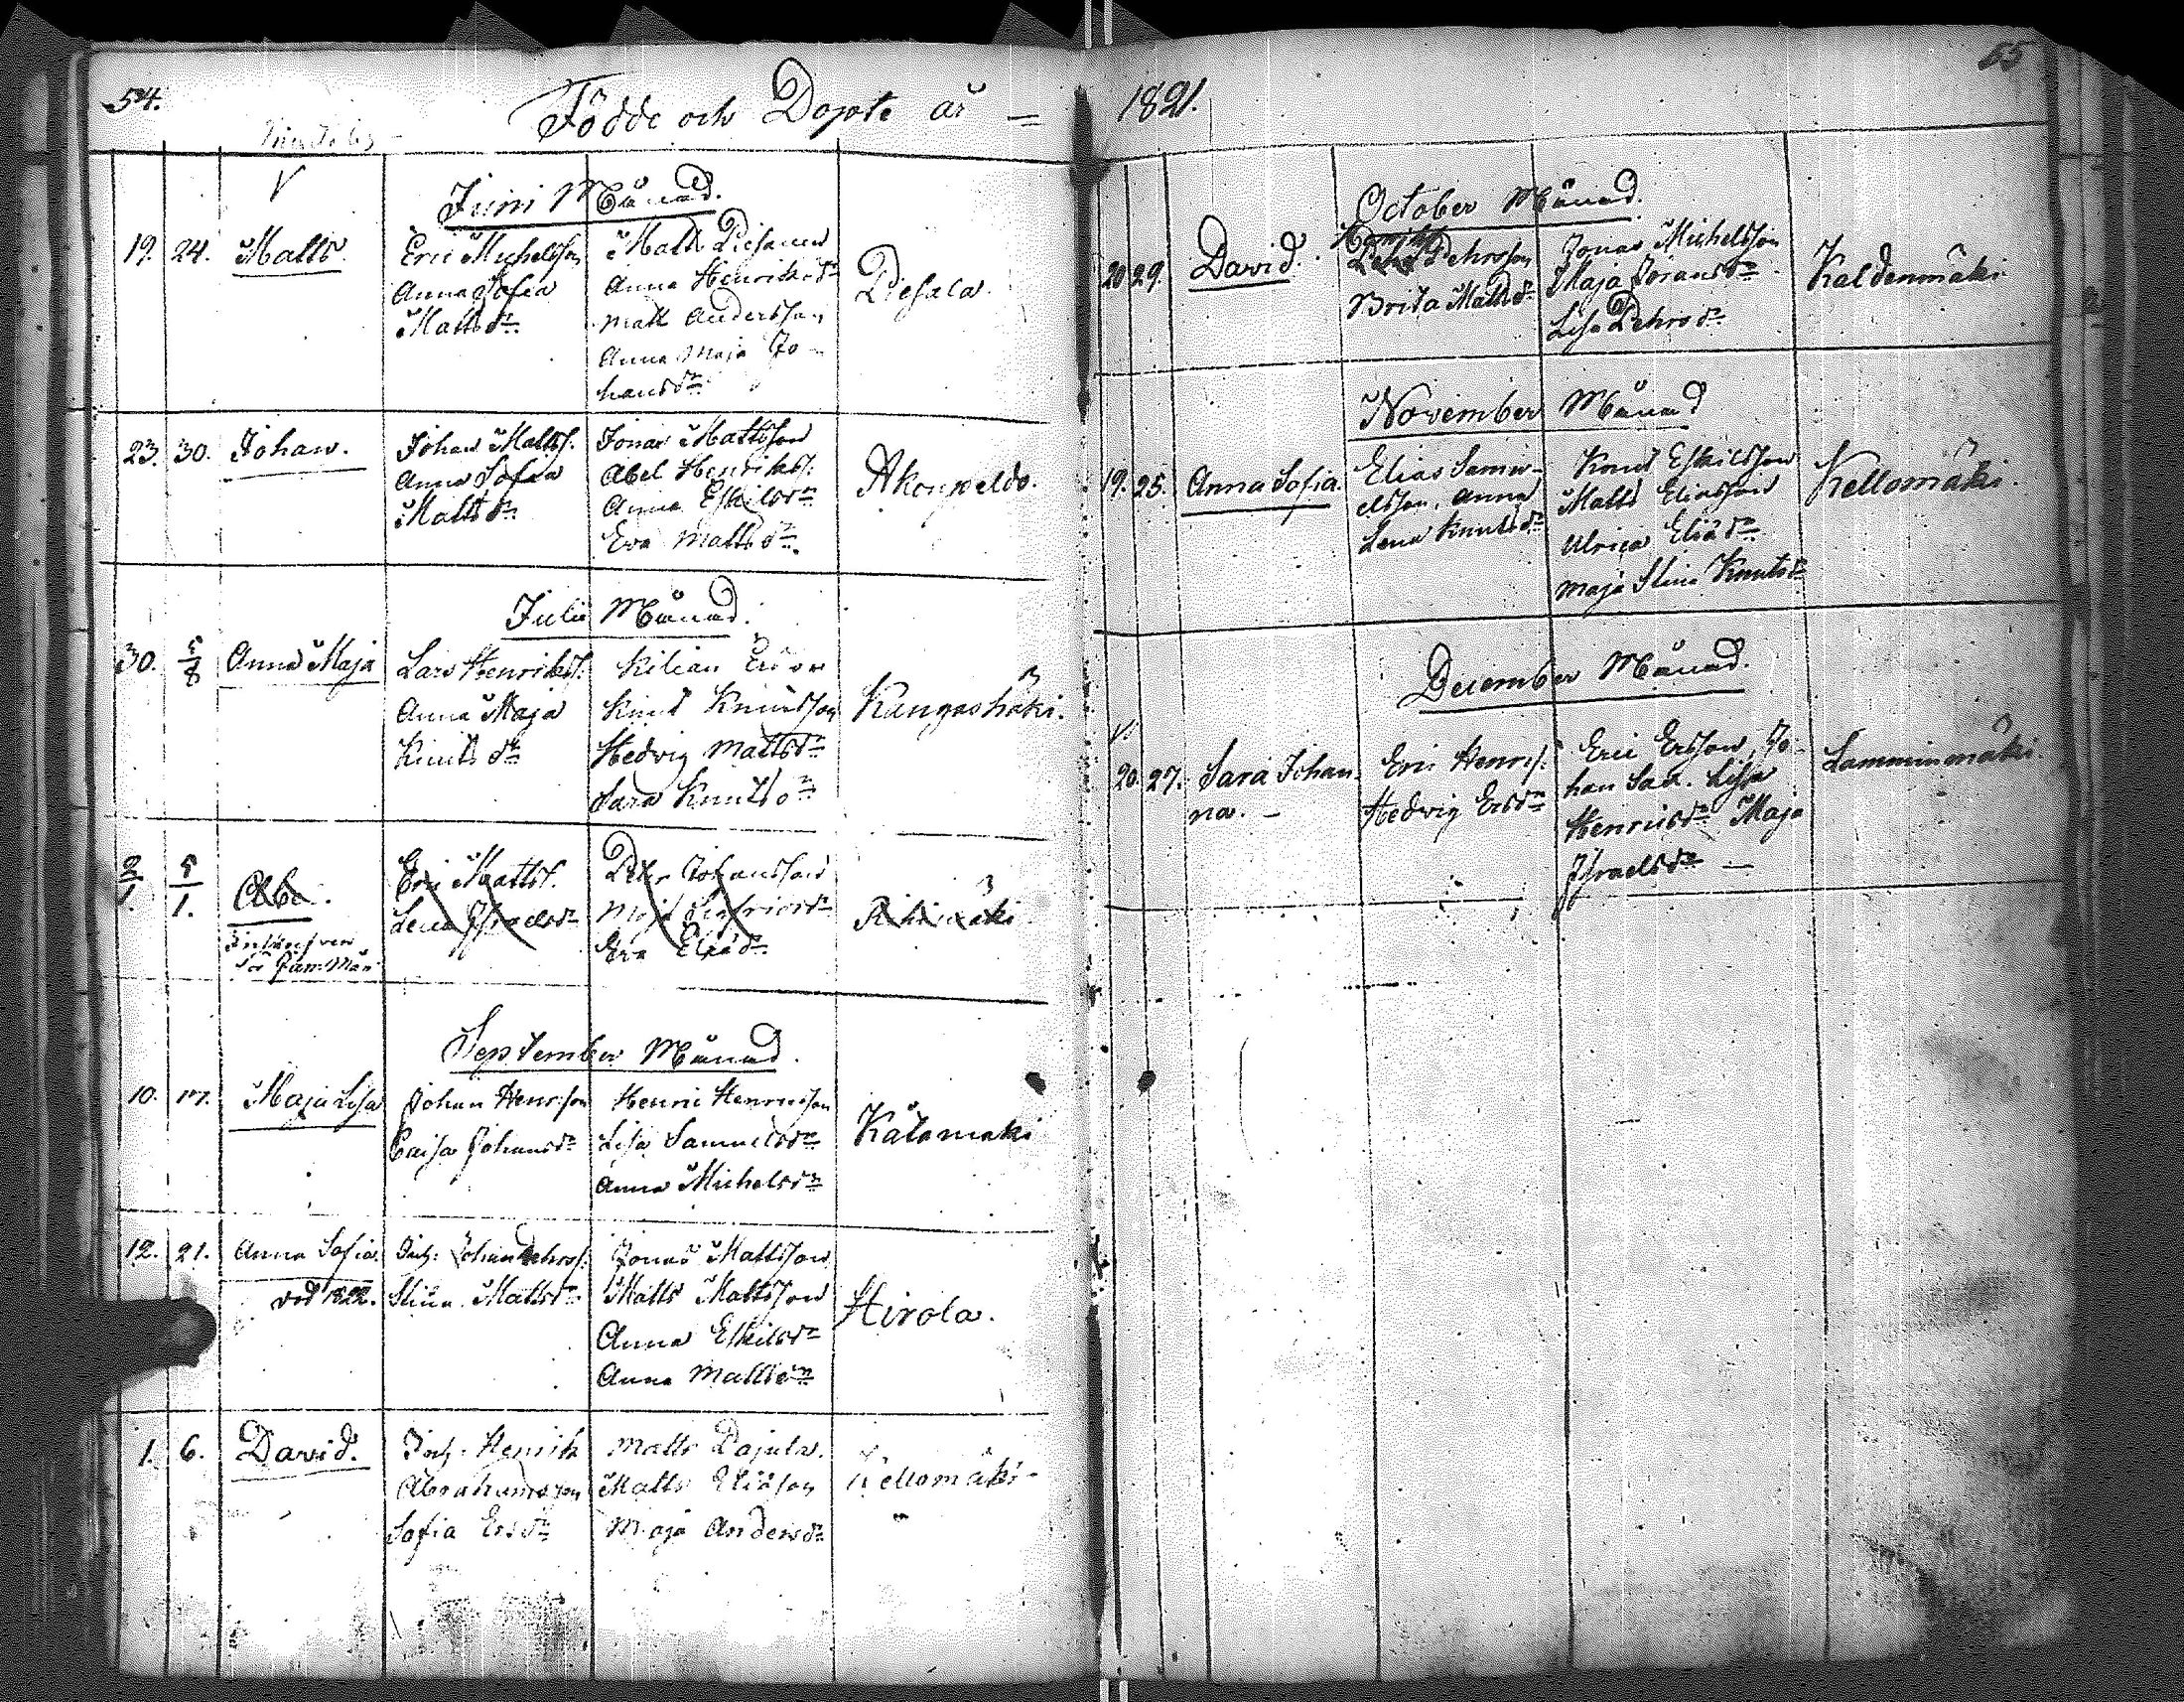 54.
Födde och Döpte år
Juni Månad.
19. 24. Matts.
Eric Michelsson
Anna Sofia
Mattsdr
Anna Henriksdr
Matt Andersson
Anna Maja Jo-
hansdr
23. 30. Johan.
Johan Mattss.
Anna Sofia
Mattsdr
Jonas Mattsson
Abel Henrikss.
Anna Eskilsdr
Eva Mattsdr.
Julii Månad.
30. 5/8 Anna Maja
Lars Henrikss.
Anna Maja
Knutsdr
Kilian
Knut Knutsson
Hedvig Mattsdr
Sara Knutsdr
Kangashäki.
2/1. 5/1. Alba.
Eric Mattss.
Lena Israelsdr
Petter Johansson
Maja Sigfridsdr
Eva Eliædr
September Månad.
10. 17. Maja Lisa
Johan Henrsson
Caisa Johansdr
Henric Henricsson
Lisa Samuelsdr
Anna Michelsdr
Kåtomäki
12. 21. Anna Sofia.
död 1822.
Inh: Johan Pehrss.
Stina Mattsdr
Jonas Mattsson
Matts Mattsson
Anna Eskilsdr
Anna Mattsdr
Hirola.
1. 6. David.
Inh: Henrik
Abrahamsson
Sofia Ersdr
Matts Pajula.
Matts Eliæson
Maja Andersdr
Kellomäki
55
1821.
October Månad.
20 29. David.
Henrik
Pehrsson
Brita Mattsdr
Jonas Michelsson
Maja Göransdr
Lisa Pehrsdr
Kaldenmäki
November Månad
19. 25. Anna Sofia.
Elias Samu-
elsson, Anna
Lena Knutsdr
Knut Eskilsson
Matts Eliasson
Ulrica Eliædr
Maja Stina Knutsdr
Kellomäki.
December Månad.
20. 27. Sara Johan-
na.
Eric Henrss.
Hedvig Ersdr
Eric Ersson, Jo-
han Sax. Lisa
Henricsdr Maja
Israelsdr
Lamminmäki.